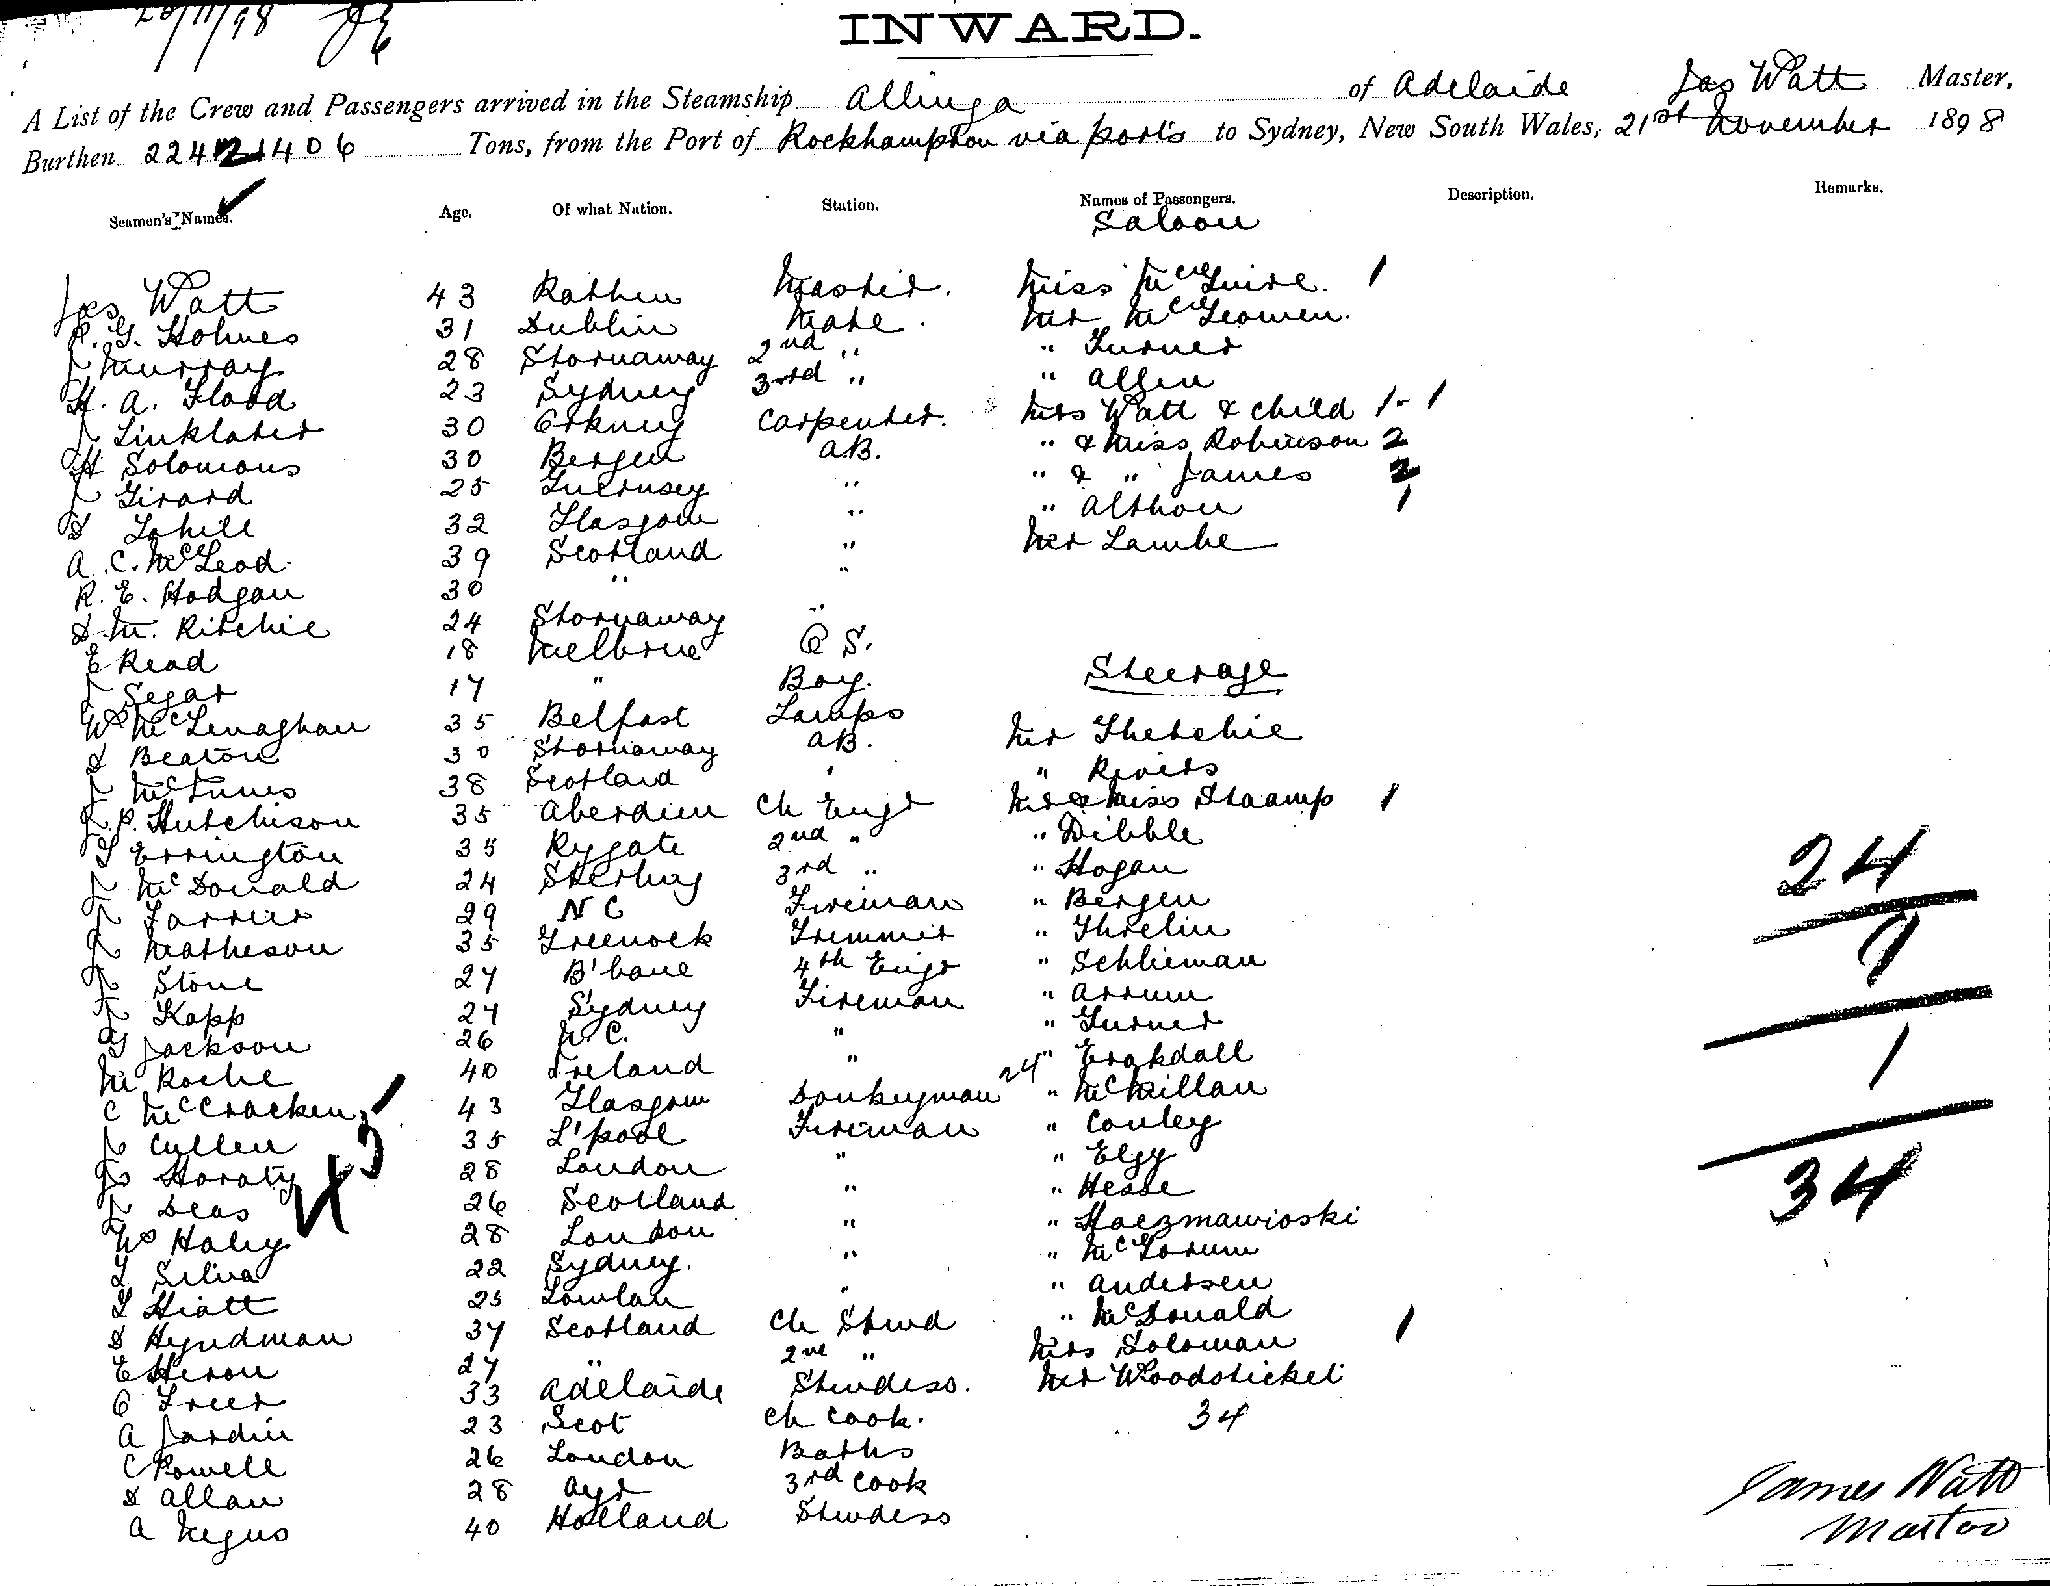 INWARD.
A List of the Crew and Passengers arrived in the Steamship Allinga of Adelaide Jas Watt Master,
Burthen 2242 1406 Tons, from the Port of Rockhampton via ports to Sydney, New South Wales, 21st November 1898
Seamen's Names. Age. Of what Nation. Station. Names of Passengers. Description. Remarks.
Saloon
Jas Watt 43 Rathen Master. Miss McGuire. 1
P. G. Holmes 31 Dublin Mate. Mr McGeowen.
J Murray 28 Stornaway 2nd " " Turner
H. A. Flood 23 Sydney 3rd " " Allen
J Linklater 30 Orkney Carpenter. Mrs Watt & Child 1-1
H Solomons 30 Bergen AB. " & Miss Robinson 2
J Girard 25 Guernsey " " & " James 2
D Tohill 32 Glasgow " " Althou 1
A. C. McLeod. 39 Scotland " Mr Lambe
R. E. Hodgan 30 " "
D M. Ritchie 24 Stornaway "
E Read 18 Melbrne O S.
J Segar 17 " Boy. Steerage
Wm McLenaghan 35 Belfast Lamps Mr Thetchie
D Beaton 30 Stornaway AB. " Rivers
J McInnes 38 Scotland " Mr & Miss Staamp 1
J. P. Hutchison 35 Aberdeen Ch Engr " Dibble
T Errington 35 Rygate 2nd " " Hogan
J McDonald 24 Sterling 3rd " " Bergen
J Farrier 29 N C Fireman " Threlin
J Matheson 35 Greenock Trimmer " Schlieman
J Stone 27 B'bane 4th Engr " Arrum
J Kopp 27 Sydney Fireman " Turner
G Jackson 26 N. C. " " Erakdall
M Roche 40 Ireland " 24 " McMillan
C McCracken 43 Glasgow Donkeyman " Conley
J Cullen 35 L'pool Fireman " Elgy
Js Horaty 28 London " " Hesse
J Deas 26 Scotland " " Haczmawioski
Ws Haley 28 London " " McGorum
L Silva 22 Sydney. " " Andersen
T Hiatt 25 Lowlan " " McDonald
D Hyndman 37 Scotland Ch Stwd Mrs Soloman 1
E Heron 27 " 2nd " Mr Woodsticket
O Freer 33 Adelaide Stwdess. 34
A Jardin 23 Scot Ch Cook.
C Powell 26 London Baths
D Allan 28 Ayr 3rd Cook
A Negus 40 Holland Stwdess
24
9
1
34
James Watt
Master